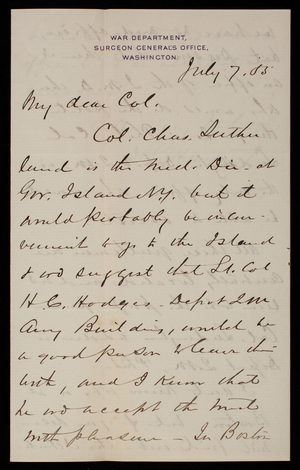 WAR DEPARTMENT,
SURGEON GENERAL'S OFFICE,
WASHINGTON.
July 7. 85
My dear Col.
Col. Chas. Suther
land is the Med. Dir. at
Gov. Island N.Y. but it
would probably be incon-
venient to go to the Island
& wd suggest that Lt. Col
H. C. Hodges - Depot Q M
Army Building, would be
a good person to leave
with, and I know that
he wd accept the trust
with pleasure - In Boston